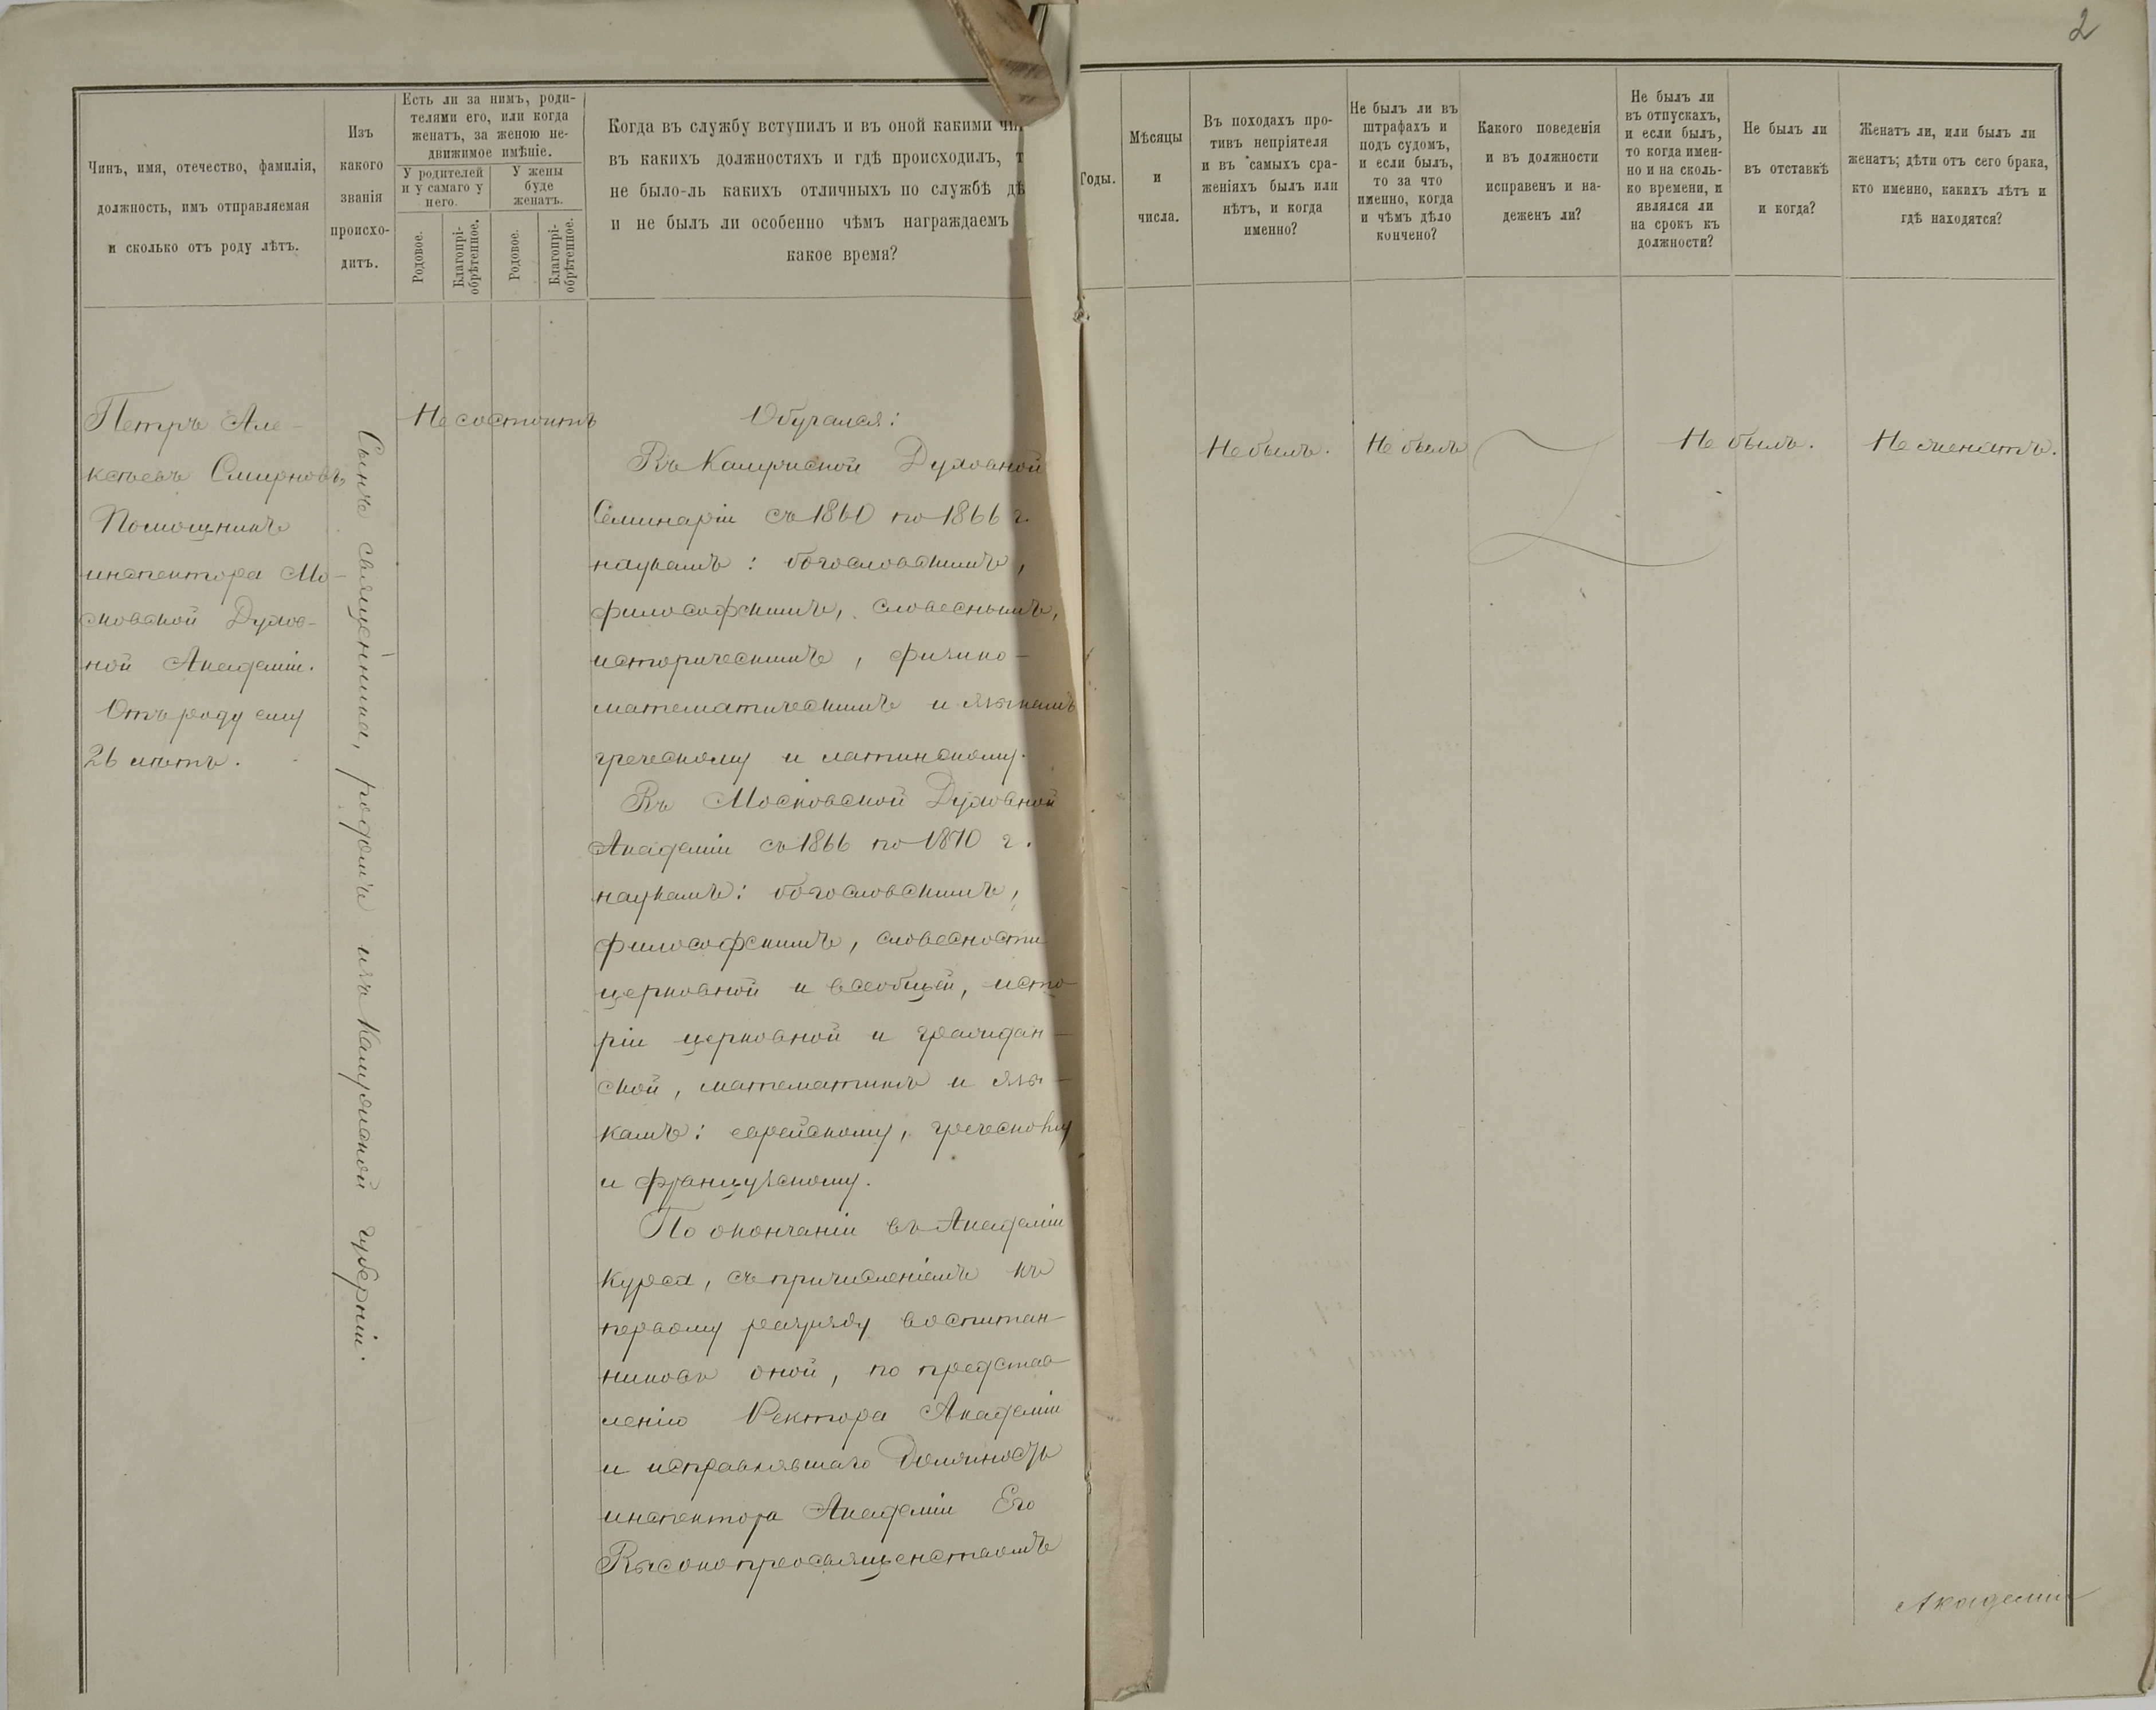 2
Чинъ, имя, отечество, фамилія,
должность, имъ отправляемая
и сколько отъ роду лѣтъ.
Изъ
какого
званія
происхо-
дитъ.
Есть ли за нимъ, роди-
телями его, или когда
женатъ, за женою не-
движимое имѣніе.
У родителей
и у самаго у
него.
У жены
буде
женатъ.
Родовое.
Благопрі-
обрѣтенное.
Родовое.
Благопрі-
обрѣтенное.
Когда въ службу вступилъ и въ оной какими
въ какихъ должностяхъ и гдѣ происходилъ,
не было-ль какихъ отличныхъ по службѣ
и не былъ ли особенно чѣмъ награждаемъ
какое время?
Годы.
Мѣсяцы
и
числа.
Въ походахъ про-
тивъ непріятеля
и въ самыхъ сра-
женіяхъ былъ или
нѣтъ, и когда
именно?
Не былъ ли въ
штрафахъ и
подъ судомъ,
и если былъ,
то за что
именно, когда
и чѣмъ дѣло
кончено?
Какого поведенія
и въ должности
исправенъ и на-
деженъ ли?
Не былъ ли
въ отпускахъ,
и если былъ,
то когда имен-
но и на сколь-
ко времени, и
являлся ли
на срокъ къ
должности?
Не былъ ли
въ отставкѣ
и когда?
Женатъ ли, или былъ ли
женатъ; дѣти отъ сего брака,
кто именно, какихъ лѣтъ и
гдѣ находятся?
Петръ Але-
ксѣевъ Смирновъ,
Помощникъ
инспектора Мо-
сковской Духов-
ной Академіи.
Отъ роду ему
26 лѣтъ.
Сынъ священника, родомъ изъ Калужской губерніи.
Не состоитъ
Обучался:
Въ Калужской Духовной
Семинаріи съ 1860 по 1866 г.
наукамъ: богословскимъ,
философскимъ, словеснымъ,
историческимъ, физико-
математическимъ и языкамъ
греческому и латинскому.
Въ Московской Духовной
Академіи съ 1866 по 1870 г.
наукамъ: богословскимъ,
философскимъ, словесности
церковной и всеобщей, исто-
ріи церковной и граждан-
ской, математикѣ и язы-
камъ: еврейскому, греческому
и французскому.
По окончаніи въ Академіи
курса, съ причисленіемъ къ
первому разряду воспитан-
никовъ оной, по представ-
ленію Ректора Академіи
и исправлявшаго должность
инспектора Академіи Его
Высокопреосвященствомъ
Не былъ.
Не былъ
Не былъ.
Не женатъ.
Академіи